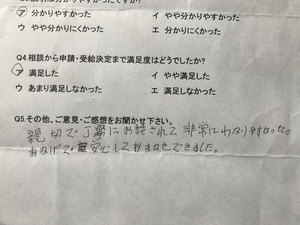 ア 分かりやすかった イ やや分かりやすかった
ウ やや分かりにくかった エ 分かりにくかった
Q4.相談から申請・受給決定まで満足度はどうでしたか?
ア 満足した イ やや満足した
ウ あまり満足しなかった エ 満足しなかった
Q5.その他、ご意見・ご感想をお聞かせ下さい。
親切で丁寧にお話されて 非常にわかりやすかった。
おかげで 安心して おまかせできました。